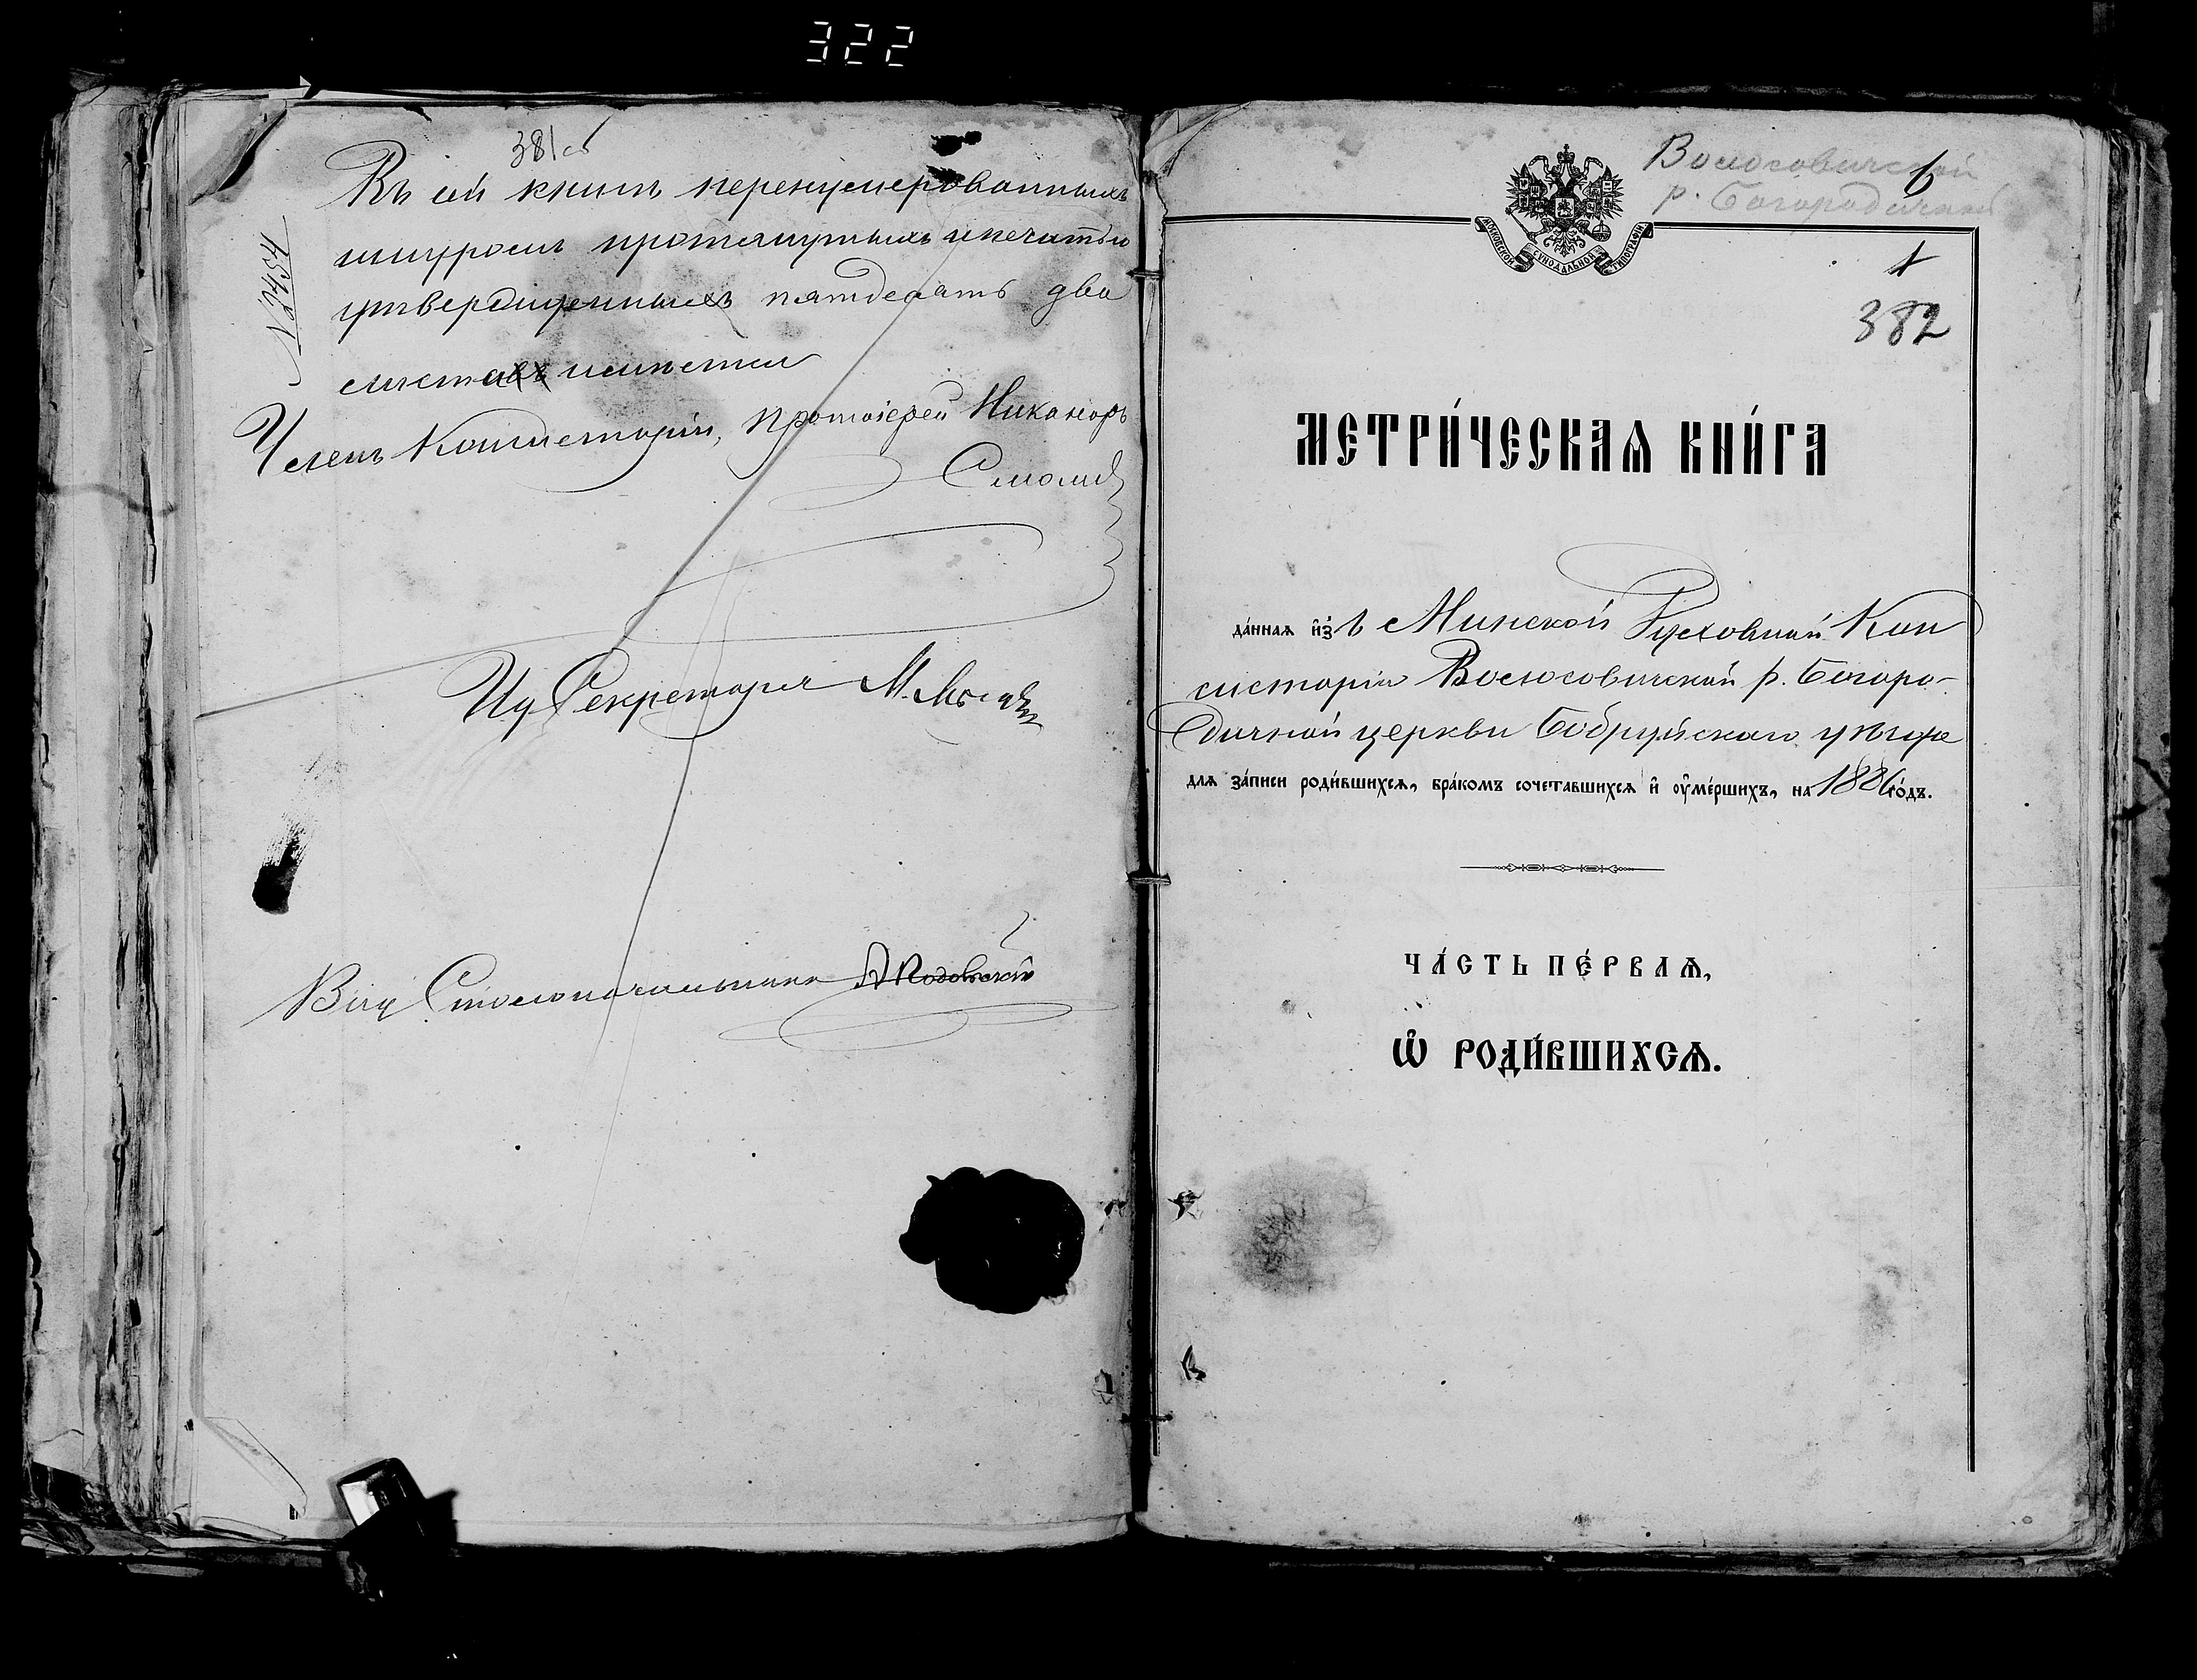 322
381 об
Въ сей книгѣ перенумерованныхъ
шнуромъ протянутыхъ и печатью
утвержденныхъ пятдесятъ два
листахъ имѣется
Членъ Консисторіи, Протоіерей Никаноръ
Смолич
Ид Секретаря М.
Вид Столоначальника
№ 2454
Волосовичской
р. Богородичной
МОСКОВСКОЙ СѴНОДАЛЬНОЙ ТИПОГРАФІИ
1
382
МЕТРИ́ЧЕСКАѦ КНИ́ГА
да́ннаѧ и҆з̾ Минской Духовной Кон
систоріи Волосовичской р. Богоро-
дичной церкви Бобруйскаго уѣзда
длѧ за́писи роди́вшихсѧ, бра́комъ сочетавшихсѧ и҆ ᲂу҆ме́ршихъ, на 1886 го́дъ.
ЧА́СТЬ ПЕ́РВАѦ,
Ѽ РОДИ́ВШИХСѦ.